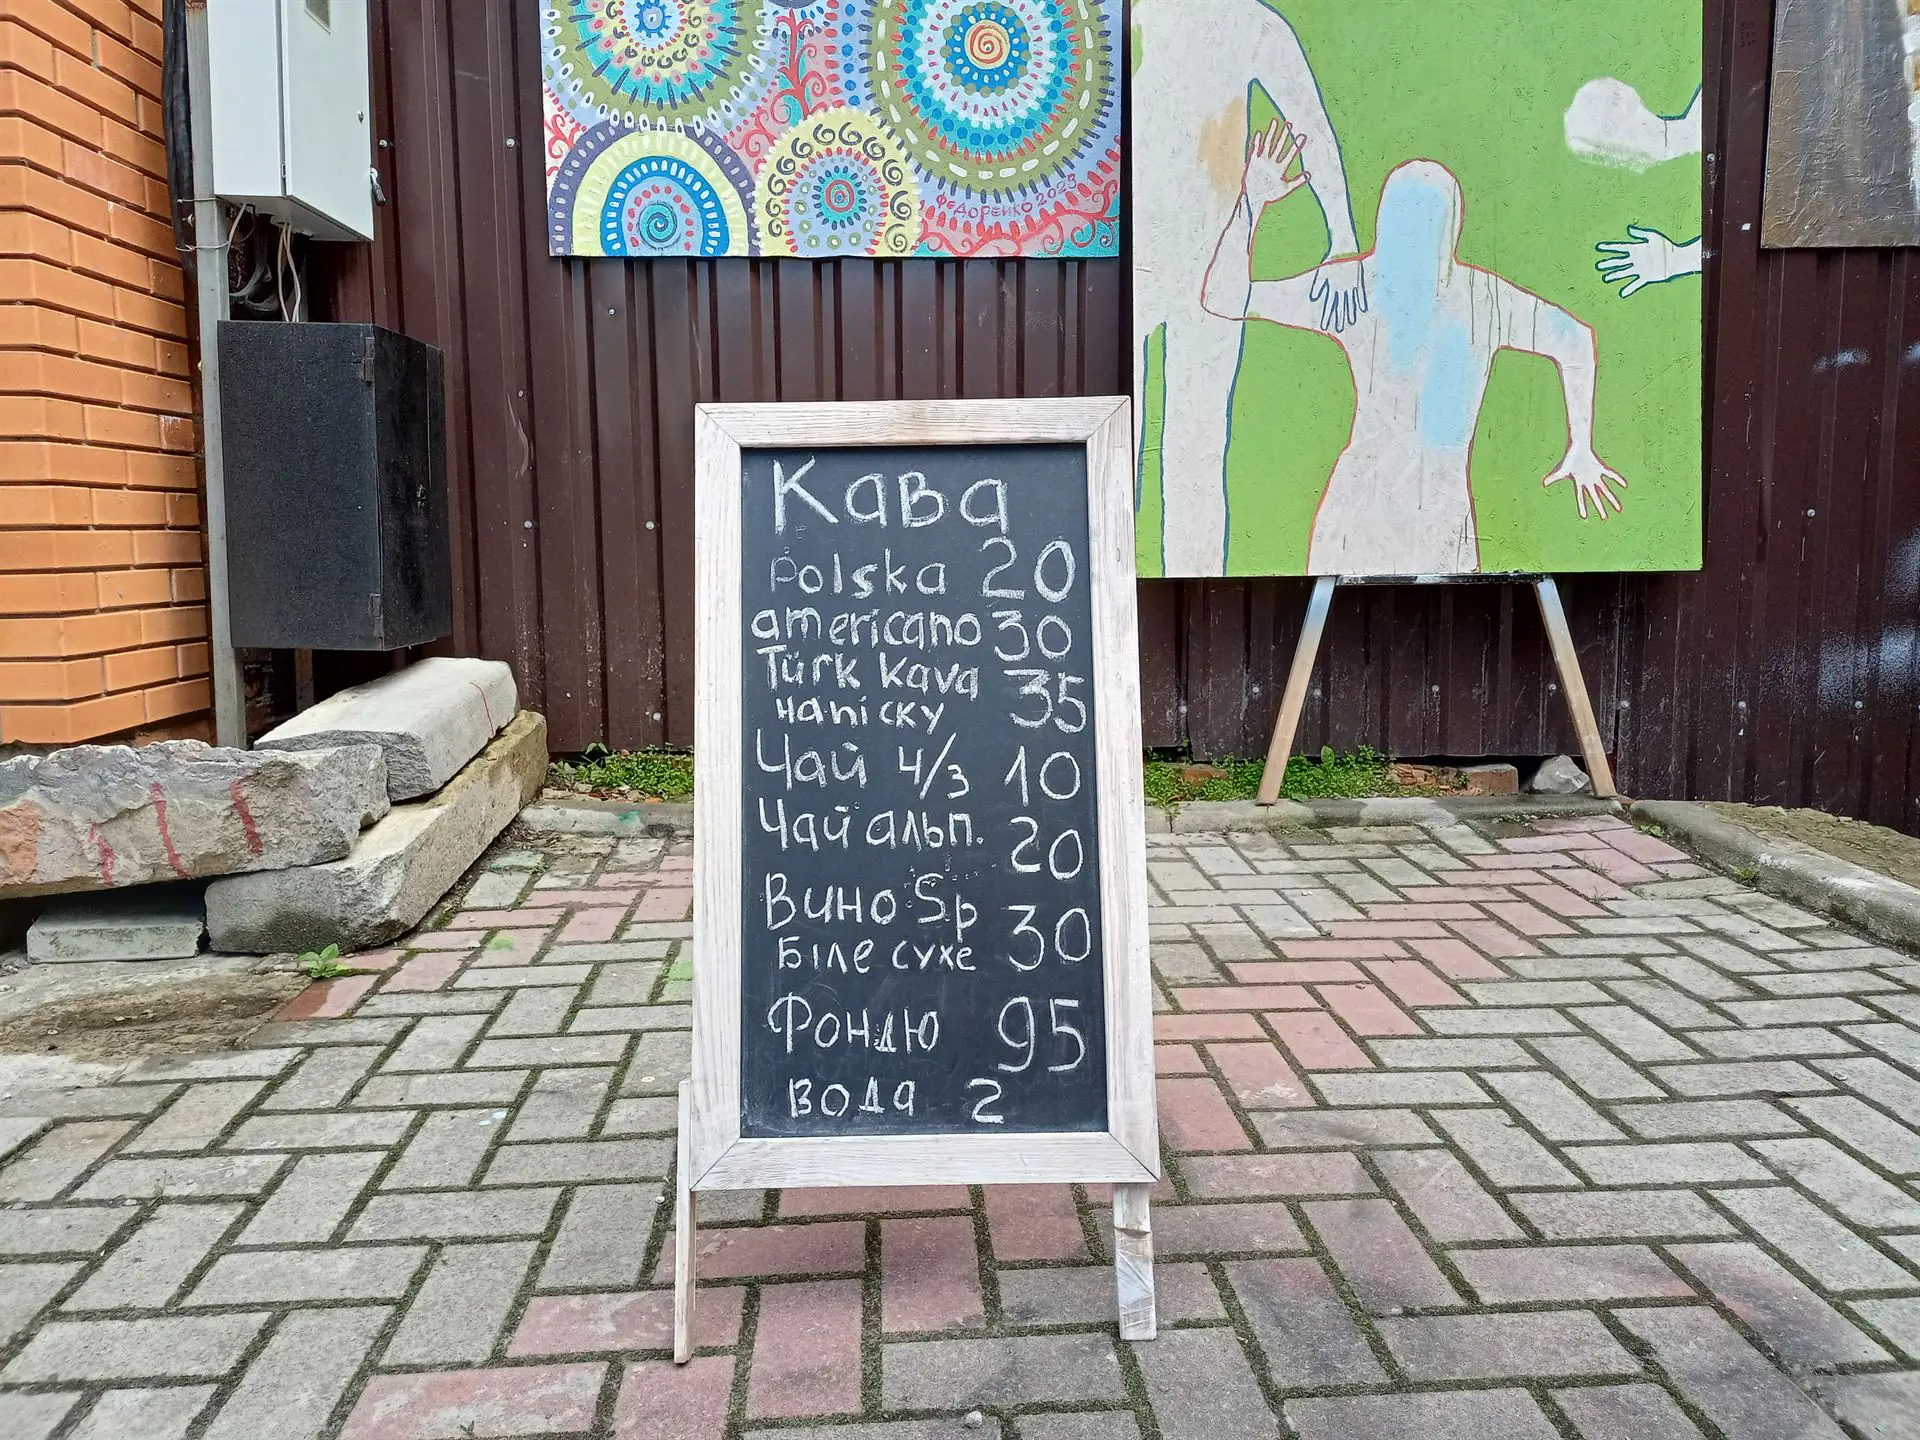 ФЕДОРЕНКО 2023
Кава
Polska 20
americano 30
Türk kava
на піску 35
Чай ч/з 10
Чай альп. 20
Вино Sp
Біле сухе 30
Фондю 95
вода 2